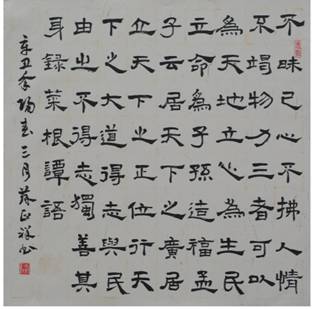 不昧己心不拂人情
不竭物力三者可以
為天地立心為生民
立命為子孫造福孟
子云居天下之廣居
立天下之正位行天
下之大道得志與民
由之不得志獨善其
身錄菜根譚語
辛丑年陽春三月